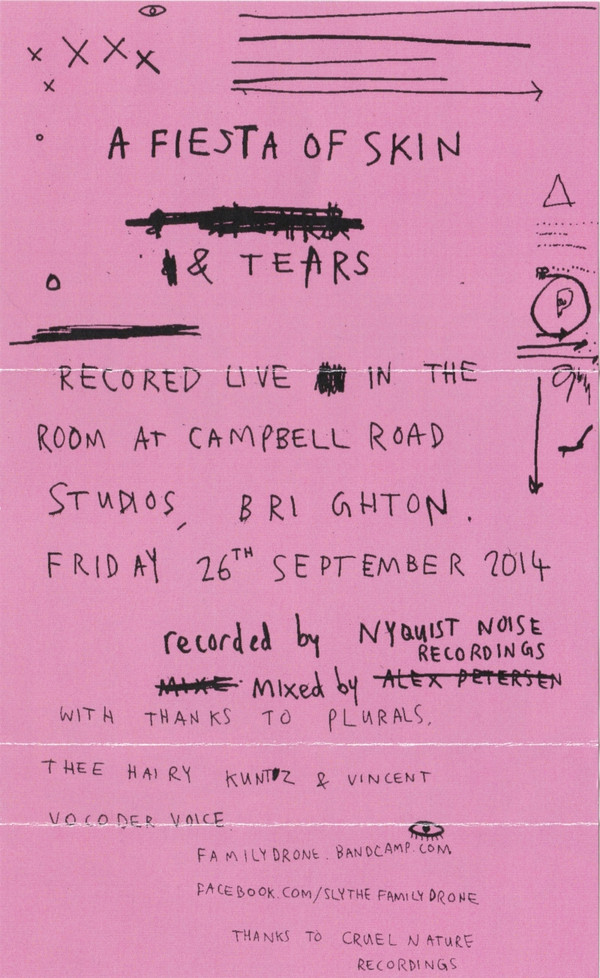 A FIESTA OF SKIN
& TEARS
RECORED LIVE IN THE
ROOM AT CAMPBELL ROAD
STUDIOS, BRIGHTON.
FRIDAY 26TH SEPTEMBER 2014
recorded by NYQUIST NOISE
RECORDINGS
MIXE Mixed by ALEX PETERSEN
WITH THANKS TO PLURALS,
THEE HAIRY KUNTZ & VINCENT
VOCODER VOICE
FAMILYDRONE.BANDCAMP.COM
FACEBOOK.COM/SLYTHEFAMILYDRONE
THANKS TO CRUEL NATURE
RECORDINGS